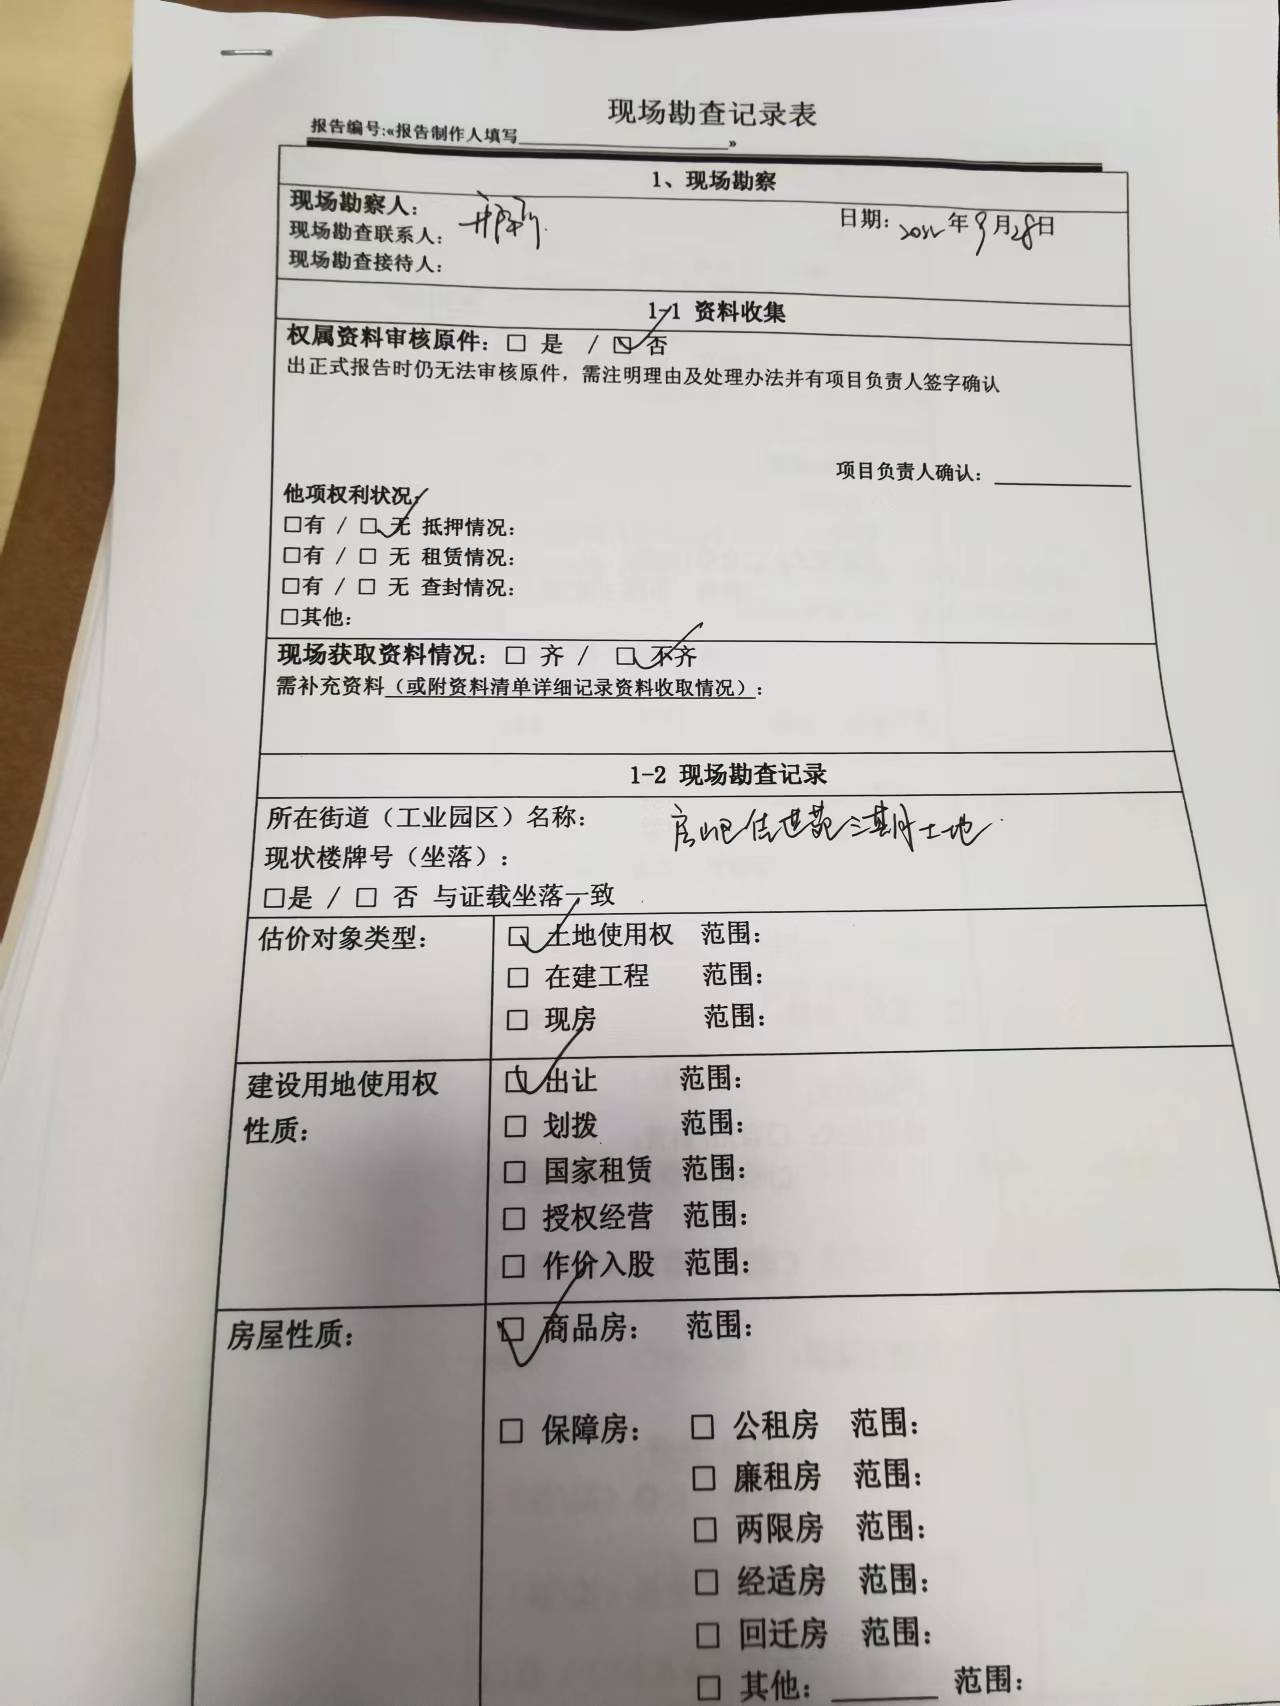 现场勘查记录表
报告编号:«报告制作人填写____________________»
1、现场勘察
现场勘察人：
日期：2022年9月28日
现场勘查联系人：
现场勘查接待人：
1-1 资料收集
权属资料审核原件：□ 是 / ☑ 否
出正式报告时仍无法审核原件，需注明理由及处理办法并有项目负责人签字确认
项目负责人确认：____________
他项权利状况：
□有 / ☑ 无 抵押情况：
□有 / □ 无 租赁情况：
□有 / □ 无 查封情况：
□其他：
现场获取资料情况：□ 齐 / ☑ 不齐
需补充资料（或附资料清单详细记录资料收取情况）：
1-2 现场勘查记录
所在街道（工业园区）名称： 房山区佳世苑三期土地
现状楼牌号（坐落）：
□是 / □ 否 与证载坐落一致
估价对象类型： ☑ 土地使用权 范围：
□ 在建工程 范围：
□ 现房 范围：
建设用地使用权
性质：
☑ 出让 范围：
□ 划拨 范围：
□ 国家租赁 范围：
□ 授权经营 范围：
□ 作价入股 范围：
房屋性质： ☑ 商品房： 范围：
□ 保障房： □ 公租房 范围：
□ 廉租房 范围：
□ 两限房 范围：
□ 经适房 范围：
□ 回迁房 范围：
□ 其他：________ 范围：